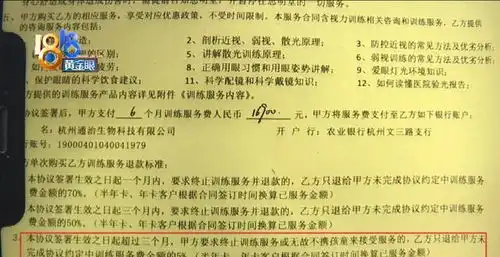 甲方购买乙方的相应服务，享受对应优惠政策，不受时间限制。本服务合同含视力训练相关咨询和训练服务，乙方提供
的咨询服务内容包括：
黄金眼
2、剖析近视、弱视、散光原理；
3、防控近视的常见方法及优劣分析；
的区别；
5、讲解散光训练原理；
6、弱视训练的常见方法及优劣分析；
8、正确用眼习惯和用眼姿势讲解；
9、爱眼灯光环境知识；
保护眼睛的科学饮食建议；
11、科学配镜和科学戴镜知识；
12、如何读懂医院验光报告；
提供的训练服务产品内容详见附件《训练服务内容》。
协议签署后，甲方支付 6 个月训练服务费人民币 16900 元，甲方将服务费支付至乙方如下银行账户：
名：杭州通治生物科技有限公司
开 户 行：农业银行杭州文三路支行
行账号：19000401040041979
方单次购买乙方训练服务退款标准：
本协议签署生效之日起一个月内，要求终止训练服务并退款的，乙方只退给甲方未完成协议约定中训练服务
费金额的70%。（半年卡、年卡客户根据合同签订时间换算已服务金额）
本协议签署生效之日起三个月内，要求终止训练服务并退款的，乙方只退给甲方未完成协议约定中训练服务
费金额的50%。（半年卡、年卡客户根据合同签订时间换算已服务金额）
3、本协议签署生效之日起超过三个月，甲方要求终止训练服务或无故不携孩童来接受服务的，乙方只退给甲方未
完成协议约定中训练服务费金额的5%（半年卡、年卡客户根据合同签订时间换算已服务金额）